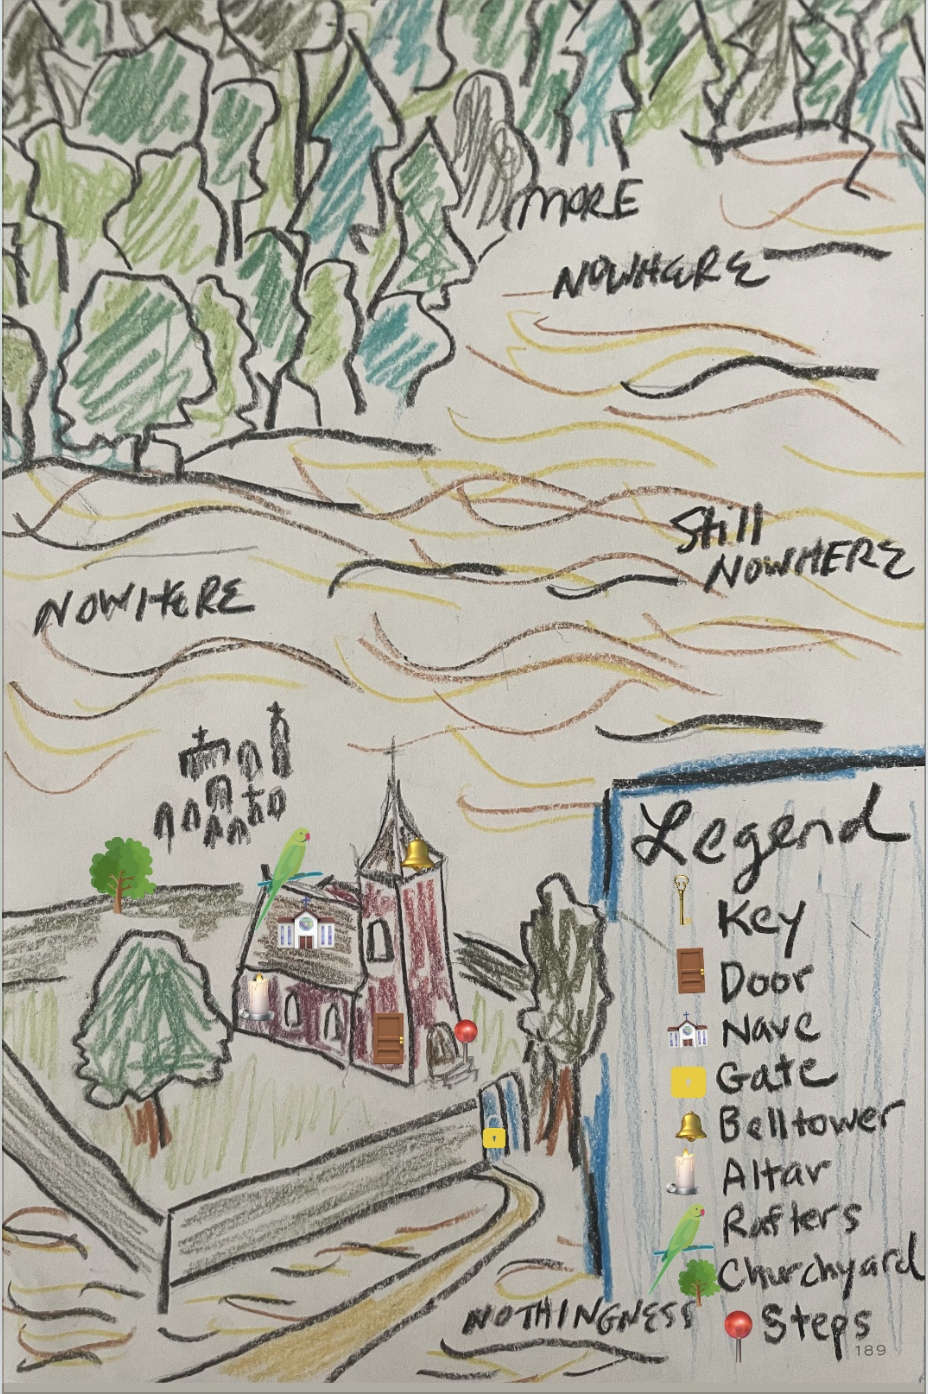 MORE
NOWHERE
Still
NOWHERE
NOWHERE
Legend
Key
Door
Nave
Gate
Belltower
Altar
Rafters
Churchyard
Steps
NOTHINGNESS
189